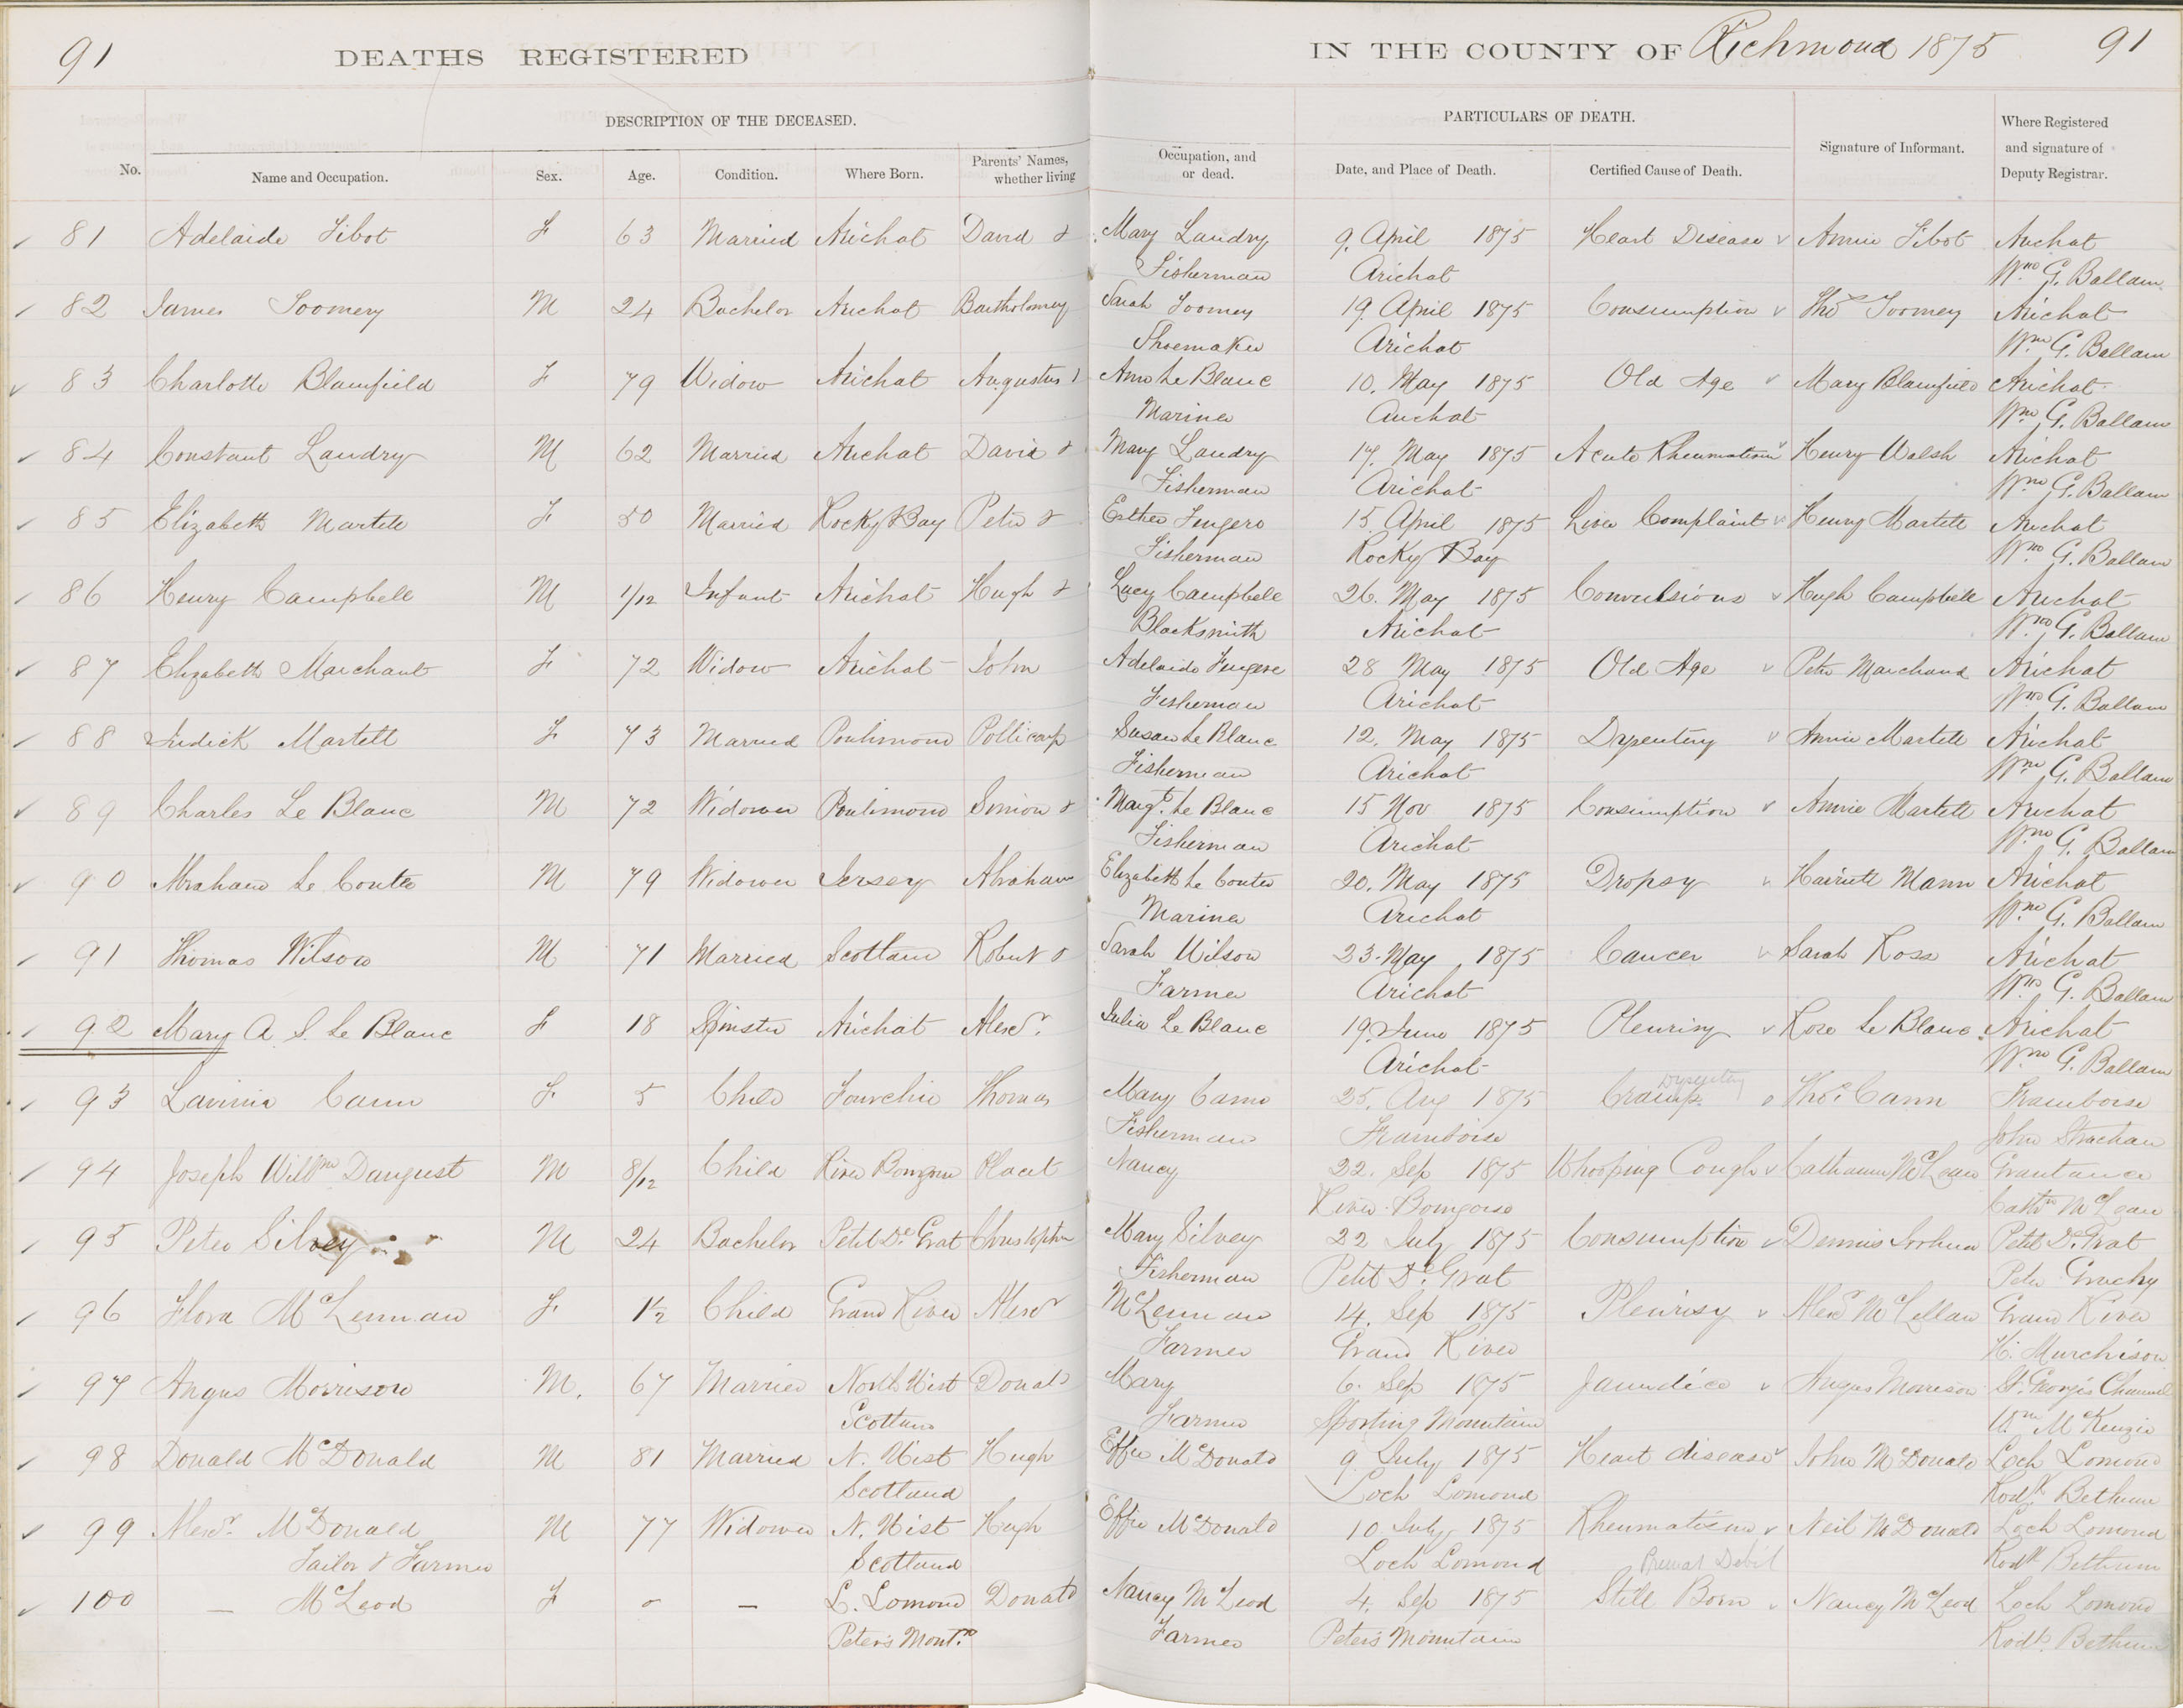 91 DEATHS REGISTERED IN THE COUNTY OF Richmond 1875 91
DESCRIPTION OF THE DECEASED. PARTICULARS OF DEATH.
No. Name and Occupation. Sex. Age. Condition. Where Born. Parents' Names, whether living Occupation, and or dead. Date, and Place of Death. Certified Cause of Death. Signature of Informant. Where Registered and signature of Deputy Registrar.
81 Adelaide Tibot F 63 Married Arichat David & Mary Landry 9. April 1875 Heart Disease Annie Tibot Arichat
Fisherman Arichat Wm G. Ballam
82 James Toomey M 24 Bachelor Arichat Bartholomey Sarah Toomey 19. April 1875 Consumption Thos Toomey Arichat
Shoemaker Arichat Wm G. Ballam
83 Charlotte Blampield F 79 Widow Arichat Augustus Ann Le Blanc 10. May 1875 Old Age Mary Blampied Arichat
Mariner Arichat Wm G. Ballam
84 Constant Landry M 62 Married Arichat David & Mary Landry 17. May 1875 Acute Rheumatism Henry Walsh Arichat
Fisherman Arichat Wm G. Ballam
85 Elizabeth Martell F 50 Married Rocky Bay Peter & Esther Fugero 15. April 1875 Liver Complaint Henry Martell Arichat
Fisherman Rocky Bay Wm G. Ballam
86 Henry Campbell M 1/12 Infant Arichat Hugh & Lucy Campbell 26. May 1875 Convulsions Hugh Campbell Arichat
Blacksmith Arichat Wm G. Ballam
87 Elizabeth Marchant F 72 Widow Arichat John Adelaide Fugere 28 May 1875 Old Age Peter Marchand Arichat
Fisherman Arichat Wm G. Ballam
88 Judick Martell F 73 Married Poulimond Pollicarp Susan Le Blanc 12. May 1875 Dysentery Annie Martell Arichat
Fisherman Arichat Wm G. Ballam
89 Charles Le Blanc M 72 Widower Poulimond Simion & Margt. Le Blanc 15 Nov 1875 Consumption Annie Martell Arichat
Fisherman Arichat Wm G. Ballam
90 Abraham Le Couter M 79 Widower Jersey Abraham Elizabeth Le Couter 20. May 1875 Dropsy Harriett Mann Arichat
Mariner Arichat Wm G. Ballam
91 Thomas Wilson M 71 Married Scotland Robert & Sarah Wilson 23. May 1875 Cancer Sarah Ross Arichat
Farmer Arichat Wm G. Ballam
92 Mary A. S. Le Blanc F 18 Spinster Arichat Alexr. Julia Le Blanc 19. June 1875 Pleurisy Rose Le Blanc Arichat
Arichat Wm G. Ballam
Dysentery
93 Lavinia Cann F. 5 Child Fourchie Thomas Mary Cann 25. Aug 1875 Cramp. Thos. Cann Framboise
Fisherman Framboise John Strachan
94 Joseph Willm Daugust M 8/12 Child River Placit Nancy 22. Sep 1875 Whooping Cough Catharine McLean Grantance
River Cathn McLean
95 Peter Silvey M 24 Bachelor Petit De Grat Christopher Mary Silvey 22 July 1875 Consumption Dennis Petit De Grat
Fisherman Petit De Grat Peter Gruchy
96 Flora McLennan F. 1½ Child Grand River Alexr McLennan 14. Sep 1875 Pleurisy Alexr McLellan Grand River
Farmer Grand River H. Murchison
97 Angus Morrison M. 67 Married North Uist Donald Mary 6. Sep 1875 Jaundice Angus Morrison St. Georges Channel
Scotland Farmer Sporting Mountain Wm McKenzie
98 Donald McDonald M 81 Married N. Uist Hugh Effie McDonald 9 July 1875 Heart disease John McDonald Loch Lomond
Scotland Loch Lomond Rodk Bethune
99 Alexr. McDonald M 77 Widower N. Uist Hugh Effie McDonald 10 July 1875 Rheumatism Neil McDonald Loch Lomond
Tailor & Farmer Scotland Loch Lomond Rodk Bethune
Premat Debil
100 — McLeod F - — L. Lomond Donald Nancy McLeod 4. Sep 1875 Still Born Nancy McLeod Loch Lomond
Peter's Mont.n Farmer Peters Mountain Rodk. Bethune